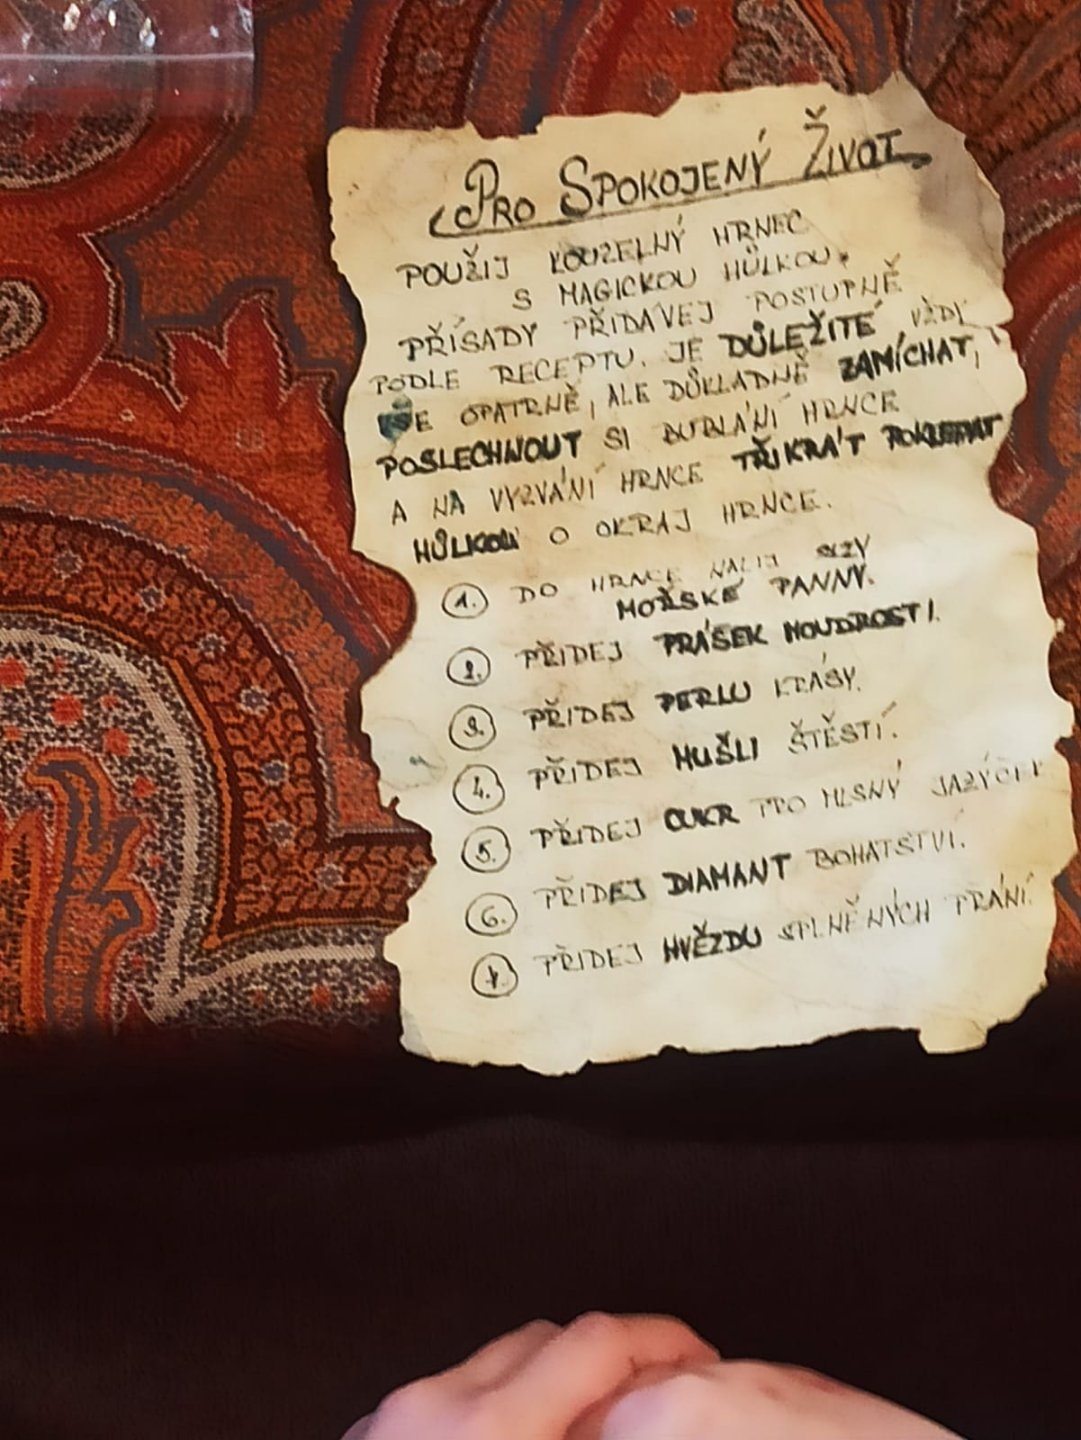 PRO SPOKOJENÝ ŽIVOT
POUŽIJ KOUZELNÝ HRNEC
S MAGICKOU HŮLKOU.
PŘÍSADY PŘIDÁVEJ POSTUPNĚ
PODLE RECEPTU. JE DŮLEŽITÉ VŽDY
VŠE OPATRNĚ, ALE DŮKLADNĚ ZAMÍCHAT,
POSLECHNOUT SI BUBLÁNÍ HRNCE
A NA VYZVÁNÍ HRNCE TŘIKRÁT POKLEPAT
HŮLKOU O OKRAJ HRNCE.
1. DO HRNCE NALIJ SLZY
MOŘSKÉ PANNY.
2. PŘIDEJ PRÁŠEK MOUDROSTI.
3. PŘIDEJ PERLU KRÁSY.
4. PŘIDEJ MUŠLI ŠTĚSTÍ.
5. PŘIDEJ CUKR PRO MLSNÝ JAZÝČEK
6. PŘIDEJ DIAMANT BOHATSTVÍ.
7. PŘIDEJ HVĚZDU SPLNĚNÝCH PŘÁNÍ.